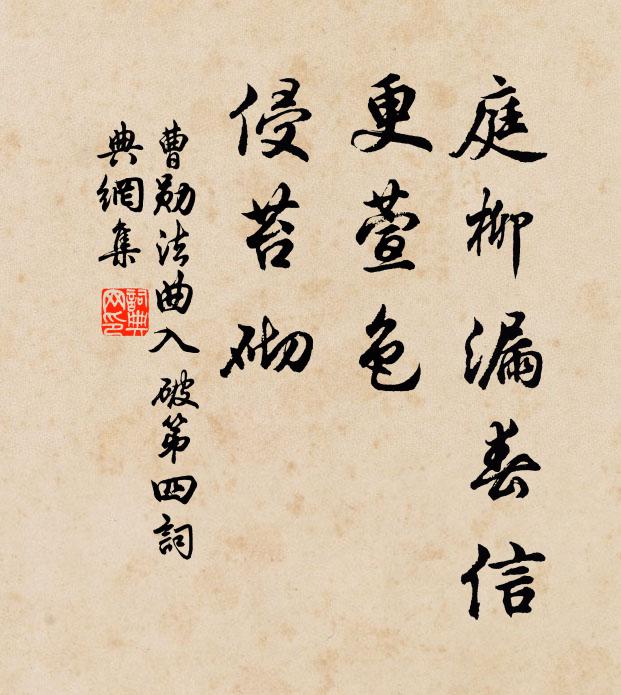 庭柳漏春信
更萱色
侵苔砌
曹勋法曲入破第四詞
典網集
詞典
网印